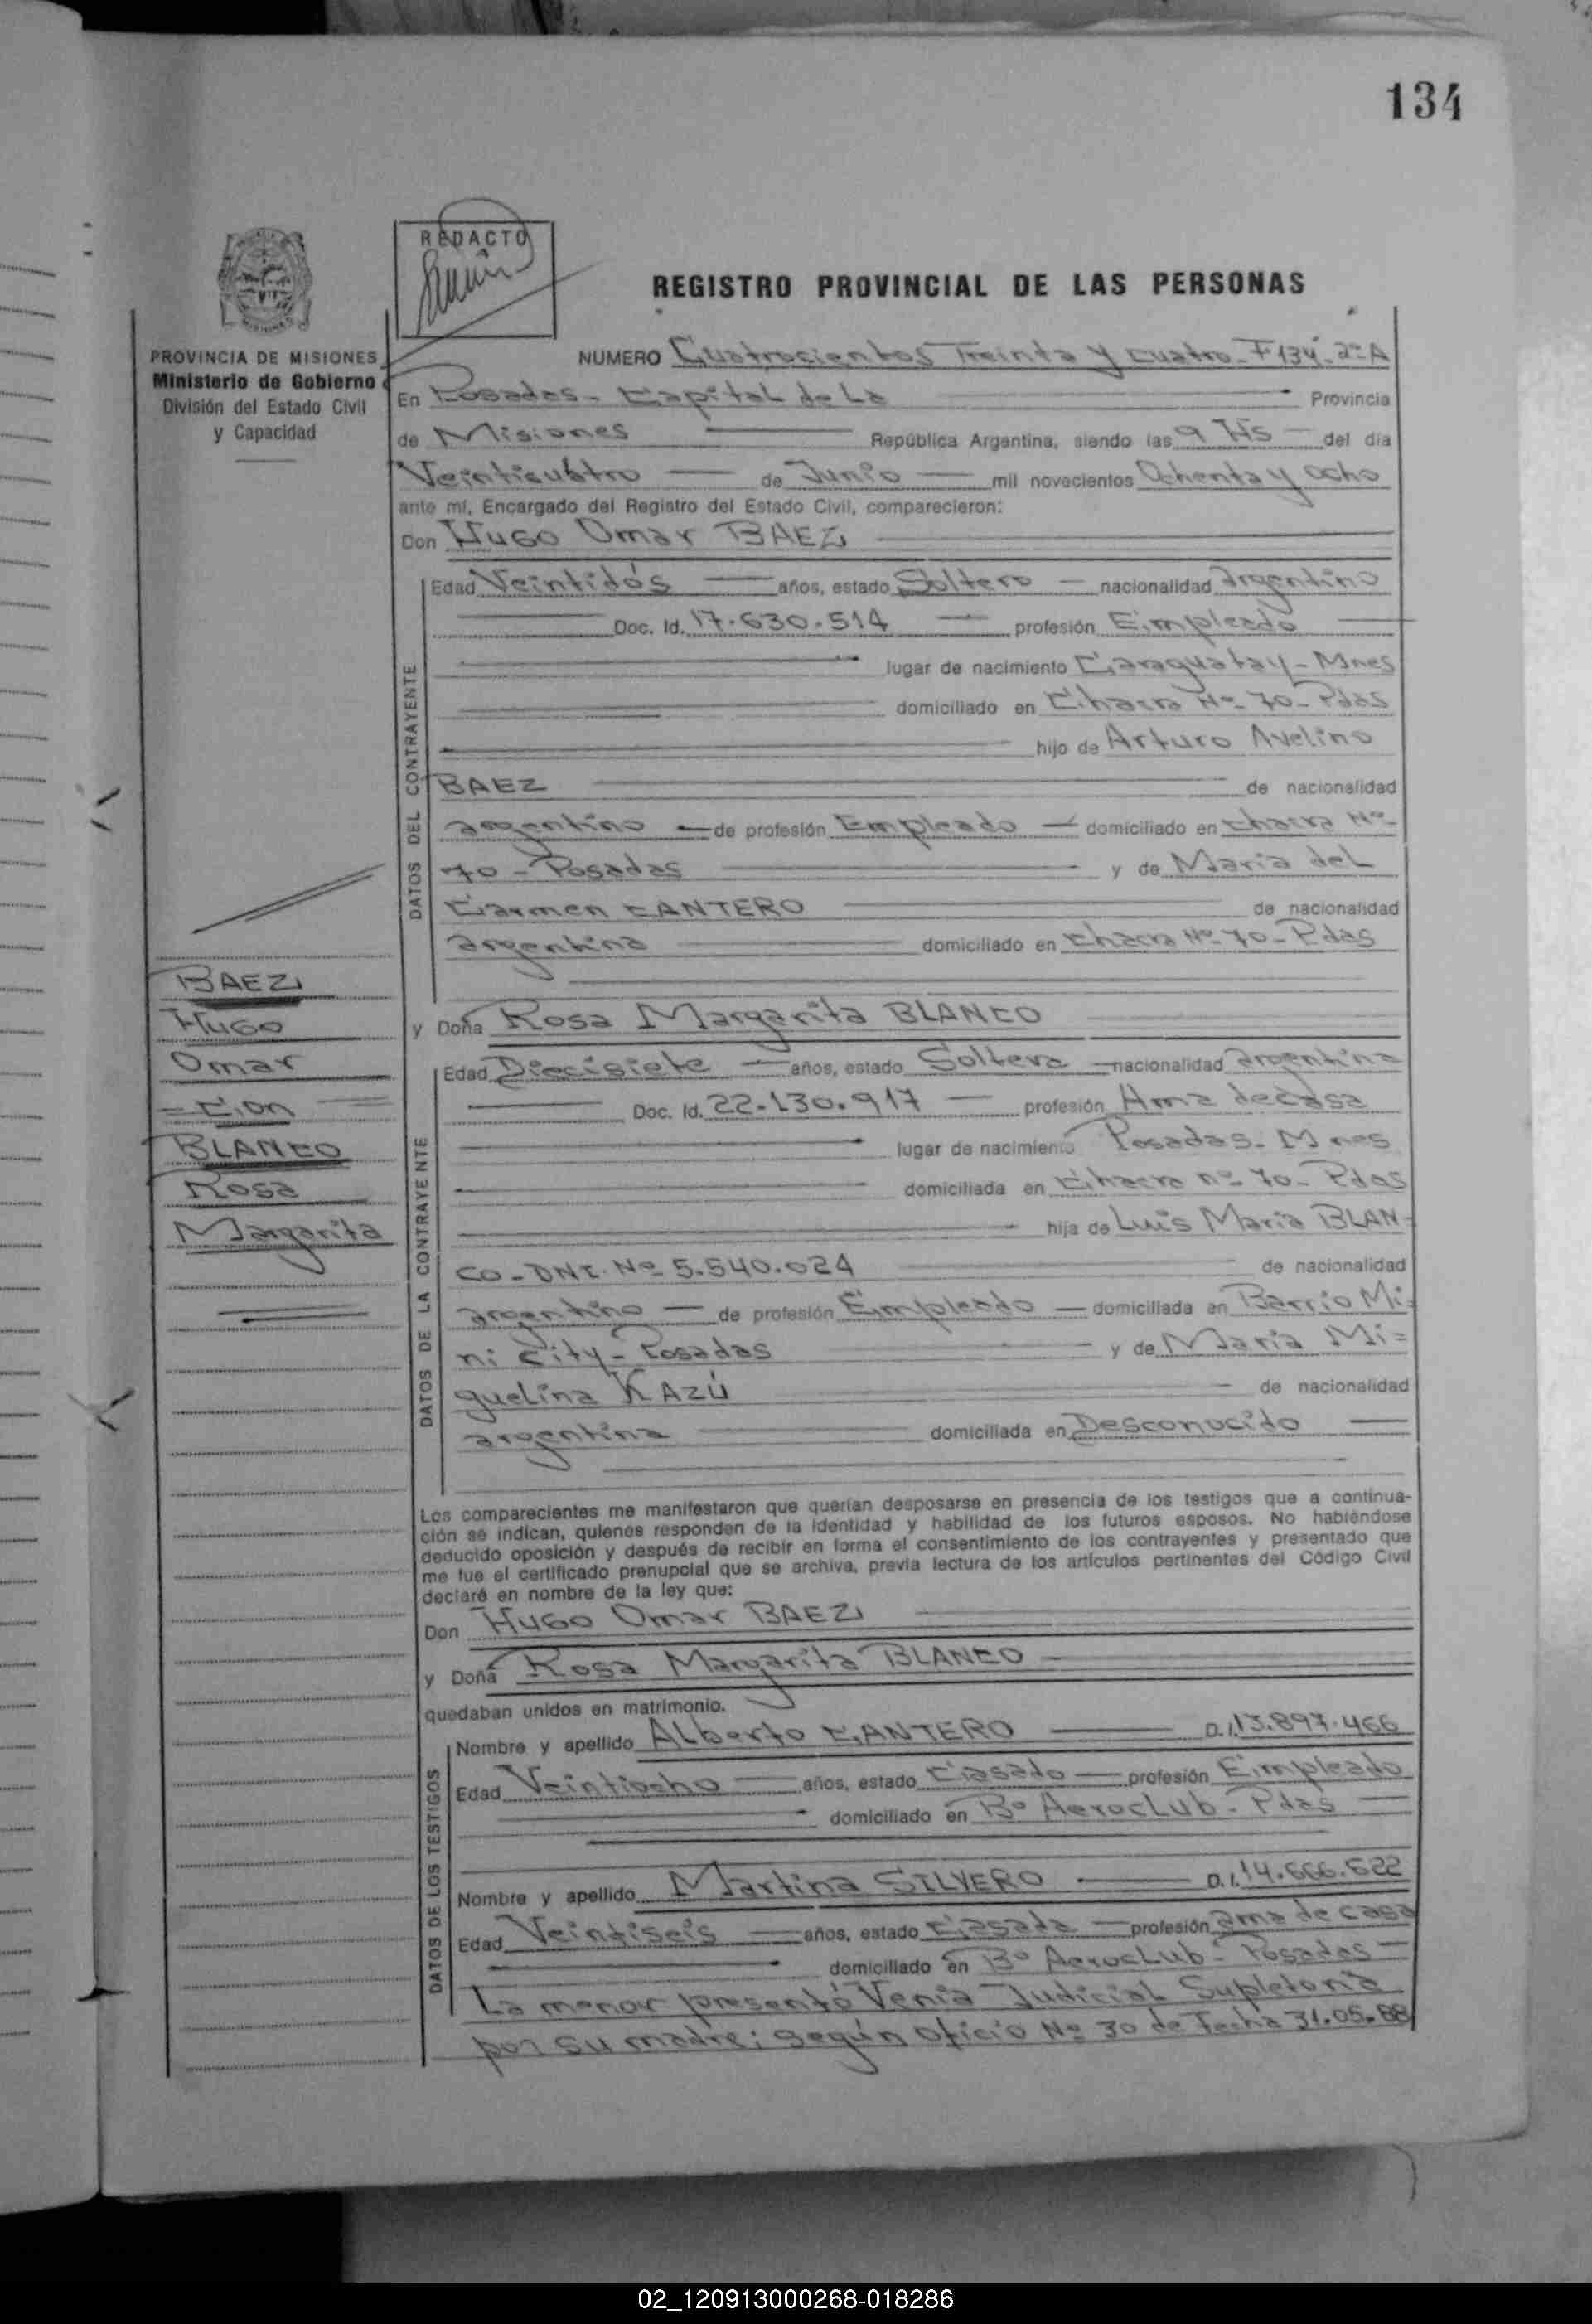 134
REDACTO
REGISTRO PROVINCIAL DE LAS PERSONAS
PROVINCIA DE MISIONES
Ministerio de Gobierno
División del Estado Civil
y Capacidad
NUMERO Cuatrocientos Treinta y cuatro - F 134 - 2º A
En Posadas - Capital de La Provincia
de Misiones República Argentina, siendo las 9 Hs del día
Veinticuatro de Junio mil novecientos Ochenta y ocho
ante mí, Encargado del Registro del Estado Civil, comparecieron:
Don Hugo Omar BAEZ
DATOS DEL CONTRAYENTE
Edad Veintidós años, estado Soltero nacionalidad argentino
Doc. Id. 17.630.514 profesión Empleado
lugar de nacimiento Caraguatay - Mnes
domiciliado en Chacra Nº 70 - Pdas
hijo de Arturo Avelino
BAEZ de nacionalidad
argentino de profesión Empleado domiciliado en chacra Nº
70 - Posadas y de María del
Carmen CANTERO de nacionalidad
argentina domiciliado en chacra Nº 70 - Pdas
BAEZ
Hugo
Omar
= Con =
BLANCO
Rosa
Margarita
y Doña Rosa Margarita BLANCO
DATOS DE LA CONTRAYENTE
Edad Diecisiete años, estado Soltera nacionalidad argentina
Doc. Id. 22.130.917 profesión Ama de casa
lugar de nacimiento Posadas - Mnes
domiciliada en Chacra nº 70 - Pdas
hija de Luis María BLAN-
CO - DNI. Nº 5.540.024 de nacionalidad
argentino de profesión Empleado domiciliada en Barrio Mi=
ni City - Posadas y de María Mi=
guelina KAZÚ de nacionalidad
argentina domiciliada en Desconocido
Los comparecientes me manifestaron que querían desposarse en presencia de los testigos que a continua-
ción se indican, quienes responden de la identidad y habilidad de los futuros esposos. No habiéndose
deducido oposición y después de recibir en forma el consentimiento de los contrayentes y presentado que
me fue el certificado prenupcial que se archiva, previa lectura de los artículos pertinentes del Código Civil
declaré en nombre de la ley que:
Don Hugo Omar BAEZ
y Doña Rosa Margarita BLANCO
quedaban unidos en matrimonio.
DATOS DE LOS TESTIGOS
Nombre y apellido Alberto CANTERO D.I. 13.897.466
Edad Veintiocho años, estado Casado profesión Empleado
domiciliado en Bº Aeroclub - Pdas
Nombre y apellido Martina SILVERO D.I. 14.666.622
Edad Veintiseis años, estado Casada profesión ama de casa
domiciliado en Bº Aeroclub - Posadas
La menor presentó Venia Judicial Supletoria
por su madre; según oficio Nº 30 de Fecha 31.05.88
02_120913000268-018286